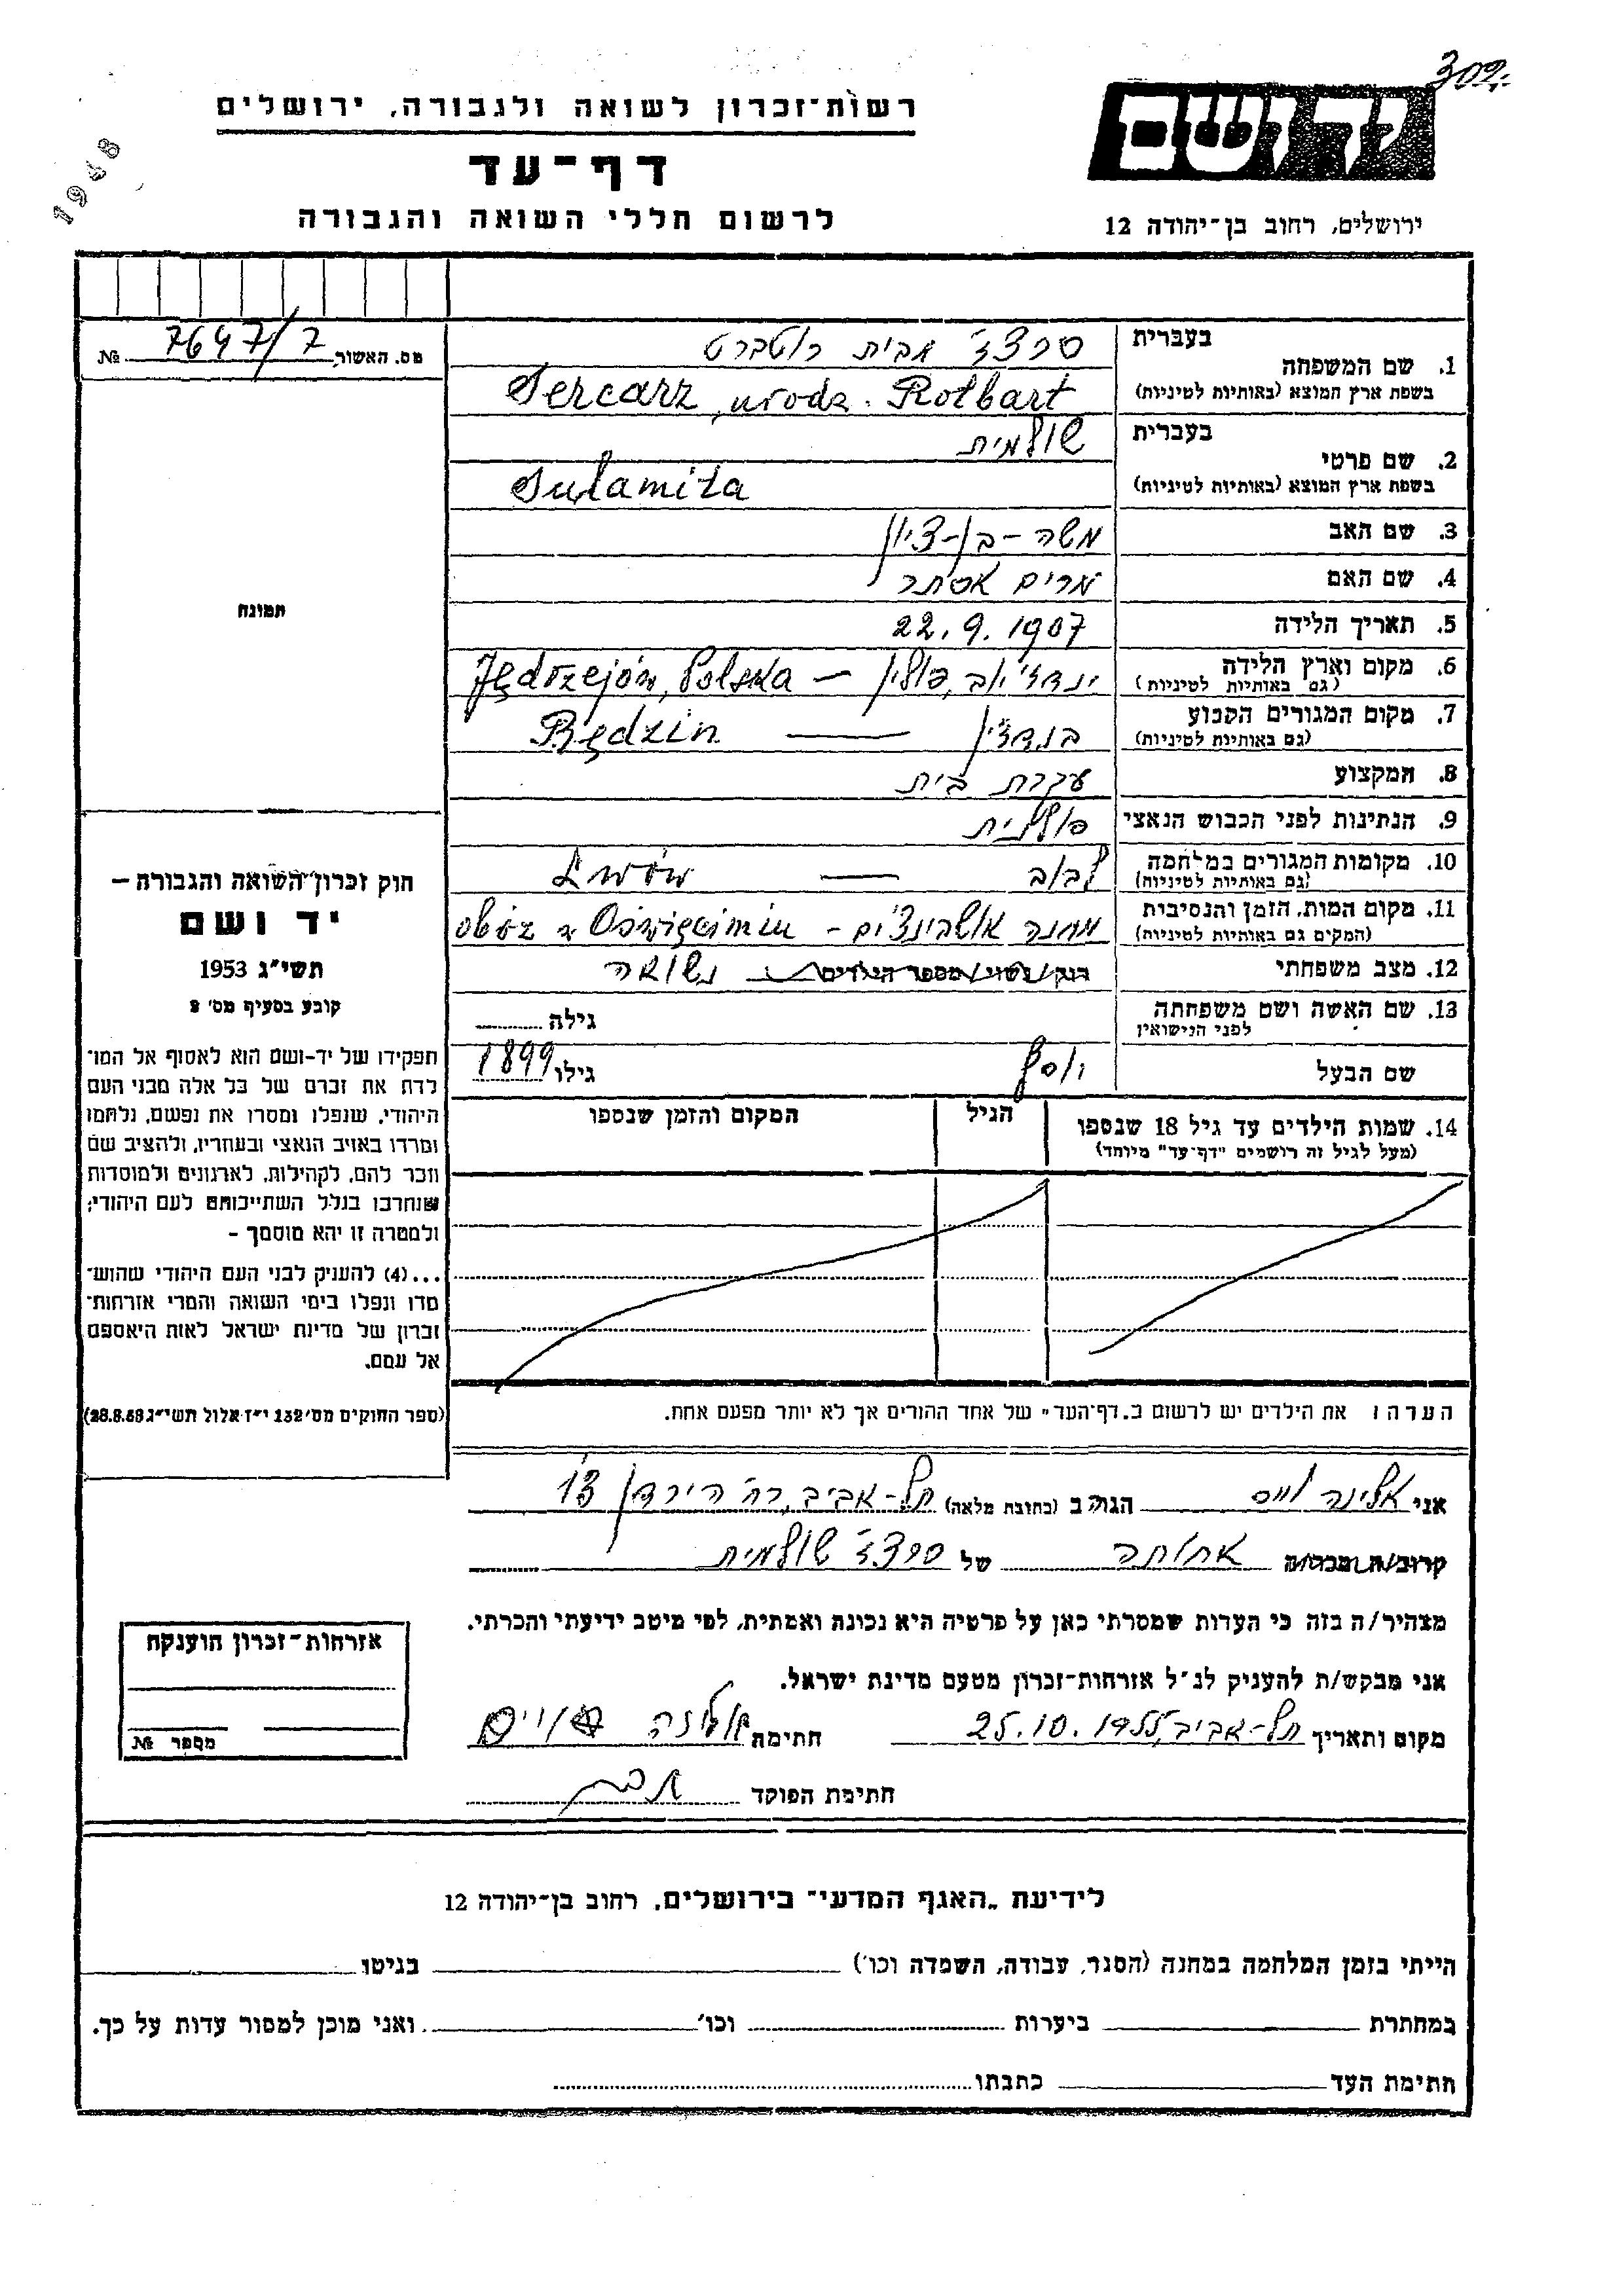 302
יד ושם
רשות־זכרון לשואה ולגבורה, ירושלים
1948
דף־עד
לרשום חללי השואה והגבורה
ירושלים, רחוב בן־יהודה 12
מס. האשור 7647/7 №
בעברית
1. שם המשפחה
בשפת ארץ המוצא (באותיות לטיניות)
סרצז' מבית רוטברט
Sercarz, urodz. Rotbart
בעברית
2. שם פרטי
בשפת ארץ המוצא (באותיות לטיניות)
שולמית
Sulamita
3. שם האב משה-בן-ציון
4. שם האם מרים אסתר
5. תאריך הלידה 22.9.1907
6. מקום וארץ הלידה
(גם באותיות לטיניות)
ינדז'יוב, פולין — Jędrzejów, Polska
7. מקום המגורים הקבוע
(גם באותיות לטיניות)
בנדז'ין — Będzin
8. המקצוע עקרת בית
9. הנתינות לפני הכבוש הנאצי פולנית
10. מקומות המגורים במלחמה
(גם באותיות לטיניות)
לבוב — Lwów
11. מקום המות, הזמן והנסיבות
(המקום גם באותיות לטיניות)
מחנה אושבינצ'ים - obóz w Oświęcimiu
12. מצב משפחתי רווק/נשוי/מספר הילדים נשואה
13. שם האשה ושם משפחתה
לפני הנישואין
גילה
שם הבעל יוסף גילו 1899
14. שמות הילדים עד גיל 18 שנספו
(מעל לגיל זה רושמים "דף־עד" מיוחד)
הגיל
המקום והזמן שנספו
הערה: את הילדים יש לרשום ב"דף־העד" של אחד ההורים אך לא יותר מפעם אחת.
תמונה
חוק זכרון השואה והגבורה –
יד ושם
תשי"ג 1953
קובע בסעיף מס' 2
תפקידו של יד־ושם הוא לאסוף אל המו־
לדת את זכרם של כל אלה מבני העם
היהודי, שנפלו ומסרו את נפשם, נלחמו
ומרדו באויב הנאצי ובעוזריו, ולהציב שם
וזכר להם, לקהילות, לארגונים ולמוסדות
שנחרבו בגלל השתייכותם לעם היהודי;
ולמטרה זו יהא מוסמך –
...(4) להעניק לבני העם היהודי שהוש־
מדו ונפלו בימי השואה והמרי אזרחות־
זכרון של מדינת ישראל לאות היאספם
אל עמם.
(ספר החוקים מס' 132 י"ז אלול תשי"ג 28.8.53)
אני אלינה וייס הגר/ה ב (כתובת מלאה) תל-אביב, רח' הירדן 13
קרוב/ה מכר/ה אחותה של סרצז' שולמית
מצהיר/ה בזה כי העדות שמסרתי כאן על פרטיה היא נכונה ואמתית, לפי מיטב ידיעתי והכרתי.
אני מבקש/ת להעניק לנ"ל אזרחות־זכרון מטעם מדינת ישראל.
מקום ותאריך תל-אביב, 25.10.1955 חתימת אלינה וייס
חתימת הפוקד
אזרחות־זכרון הוענקה
מספר №
לידיעת "האגף המדעי" בירושלים, רחוב בן־יהודה 12
הייתי בזמן המלחמה במחנה (הסגר, עבודה, השמדה וכו') בגיטו
במחתרת ביערות וכו' ואני מוכן למסור עדות על כך.
חתימת העד כתבתו